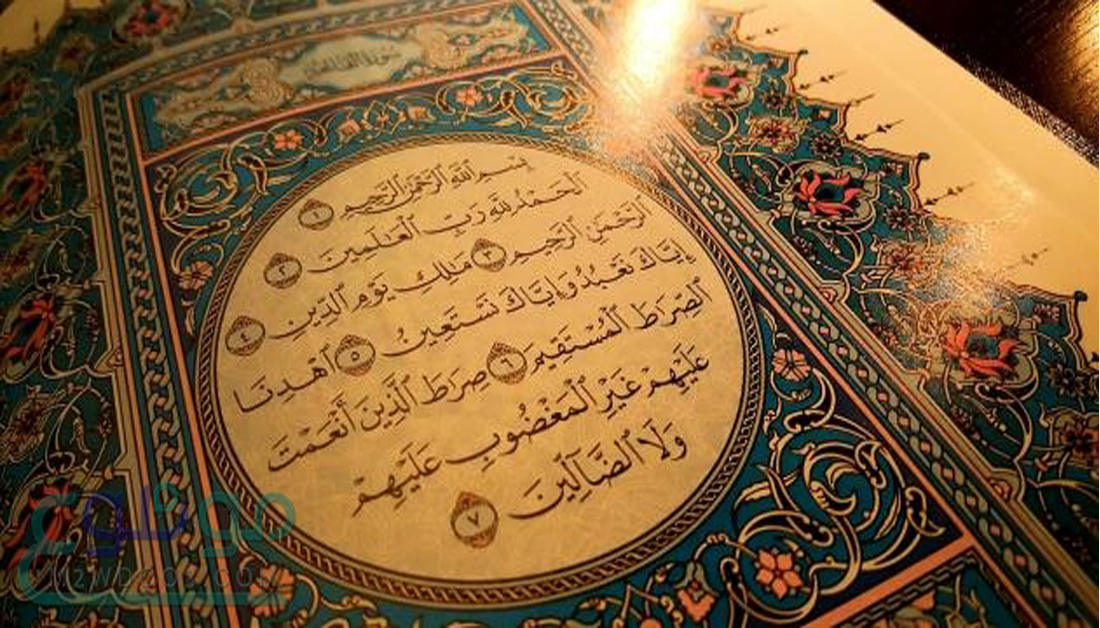 سورة الفاتحة
بِسْمِ ٱللَّهِ ٱلرَّحْمَٰنِ ٱلرَّحِيمِ ١
ٱلْحَمْدُ لِلَّهِ رَبِّ ٱلْعَٰلَمِينَ ٢
ٱلرَّحْمَٰنِ ٱلرَّحِيمِ ٣ مَٰلِكِ يَوْمِ ٱلدِّينِ ٤
إِيَّاكَ نَعْبُدُ وَإِيَّاكَ نَسْتَعِينُ ٥ ٱهْدِنَا
ٱلصِّرَٰطَ ٱلْمُسْتَقِيمَ ٦ صِرَٰطَ ٱلَّذِينَ أَنْعَمْتَ
عَلَيْهِمْ غَيْرِ ٱلْمَغْضُوبِ عَلَيْهِمْ
وَلَا ٱلضَّآلِّينَ ٧
موضوع